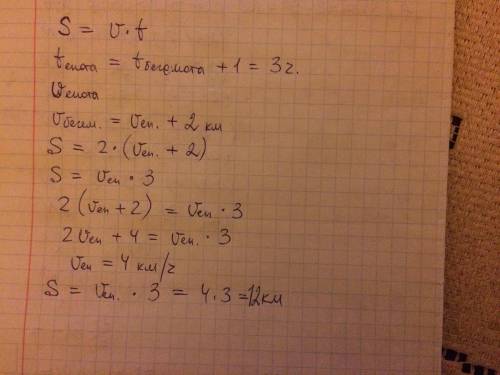 S = v · t
tенота = tбегемота + 1 = 3 ч.
vенота
vбегем. = vен. + 2 км
S = 2 · (vен. + 2)
S = vен · 3
2 (vен + 2) = vен · 3
2vен + 4 = vен. · 3
vен = 4 км/ч
S = vен. · 3 = 4 · 3 = 12 км